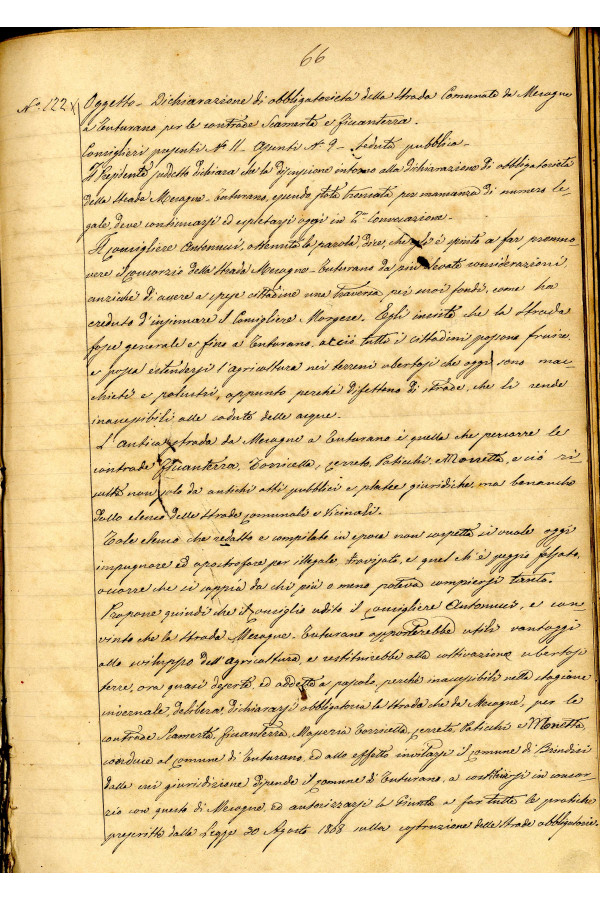 66
N.º 122 Oggetto - Dichiarazione di obbligatorietà della strada Comunale da Mesagne
a Tuturano per le contrade Scamerta e ficuanterra.
Consiglieri presenti Nº 11 - Assenti Nº 9 - Seduta pubblica -
Il Presidente suddetto dichiara che la discussione intorno alla dichiarazione di obbligatorietà
della strada Mesagne - Tuturano, essendo stata troncata per mancanza di numero le-
gale, deve continuarsi ed espletarsi oggi in 2ª Convocazione -
Il Consigliere Antonucci, ottenuta la parola, dice, che egli è spinto a far promuo
vere il consorzio della strada Mesagne - Tuturano da più elevate considerazioni
anziché di avere a spese cittadine una traversa pei suoi fondi, come ha
creduto d'insinuare il Consigliere Morgese. Egli insiste che la strada
fosse generale e fino a Tuturano, acciò tutti i cittadini possono fruire
e possa estendersi l'agricoltura nei terreni ubertosi che oggi sono mac-
chiosi e palustri, appunto perché difettono di strade, che li rende
inaccessibili alle cadute delle acque.
L'antica strada da Mesagne a Tuturano è quella che percorre le
contrade ficuanterra, Torricella, Cerreto, Paticchi, e Moretta, e ciò ri-
sulta non solo da antichi atti pubblici e platee giuridiche, ma benanche
dallo elenco delle strade comunali e vicinali.
Tale elenco che redatto e compilato in epoca non sospetta si vuole oggi
impugnare ed apostrofare per illegale, travisato, e quel ch'è peggio falsato,
occorre che si sappia da chi più o meno poteva compiersi tanto.
Propone quindi che il Consiglio udito il Consigliere Antonucci, e con
vinto che la strada Mesagne - Tuturano apporterebbe utili vantaggi
allo sviluppo dell'agricoltura, e restituirebbe alla coltivazione ubertose
terre, ora quasi deserte, ed addette a pascolo, perché inaccessibili nella stagione
invernale, delibera, dichiararsi obbligatoria la strada che da Mesagne, per le
contrade Scamerta, ficuanterra, Masseria Torricella, Cerreto, Paticchi e Moretta,
conduce al comune di Tuturano, ed allo effetto invitarsi il Comune di Brindisi
dalla cui giuridizione dipende il comune di Tuturano, a costituirsi in consor-
zio con questo di Mesagne, ed autorizzarsi la Giunta a far tutte le pratiche
prescritte dalla Legge 30 Agosto 1868 sulla costruzione delle strade obbligatorie.